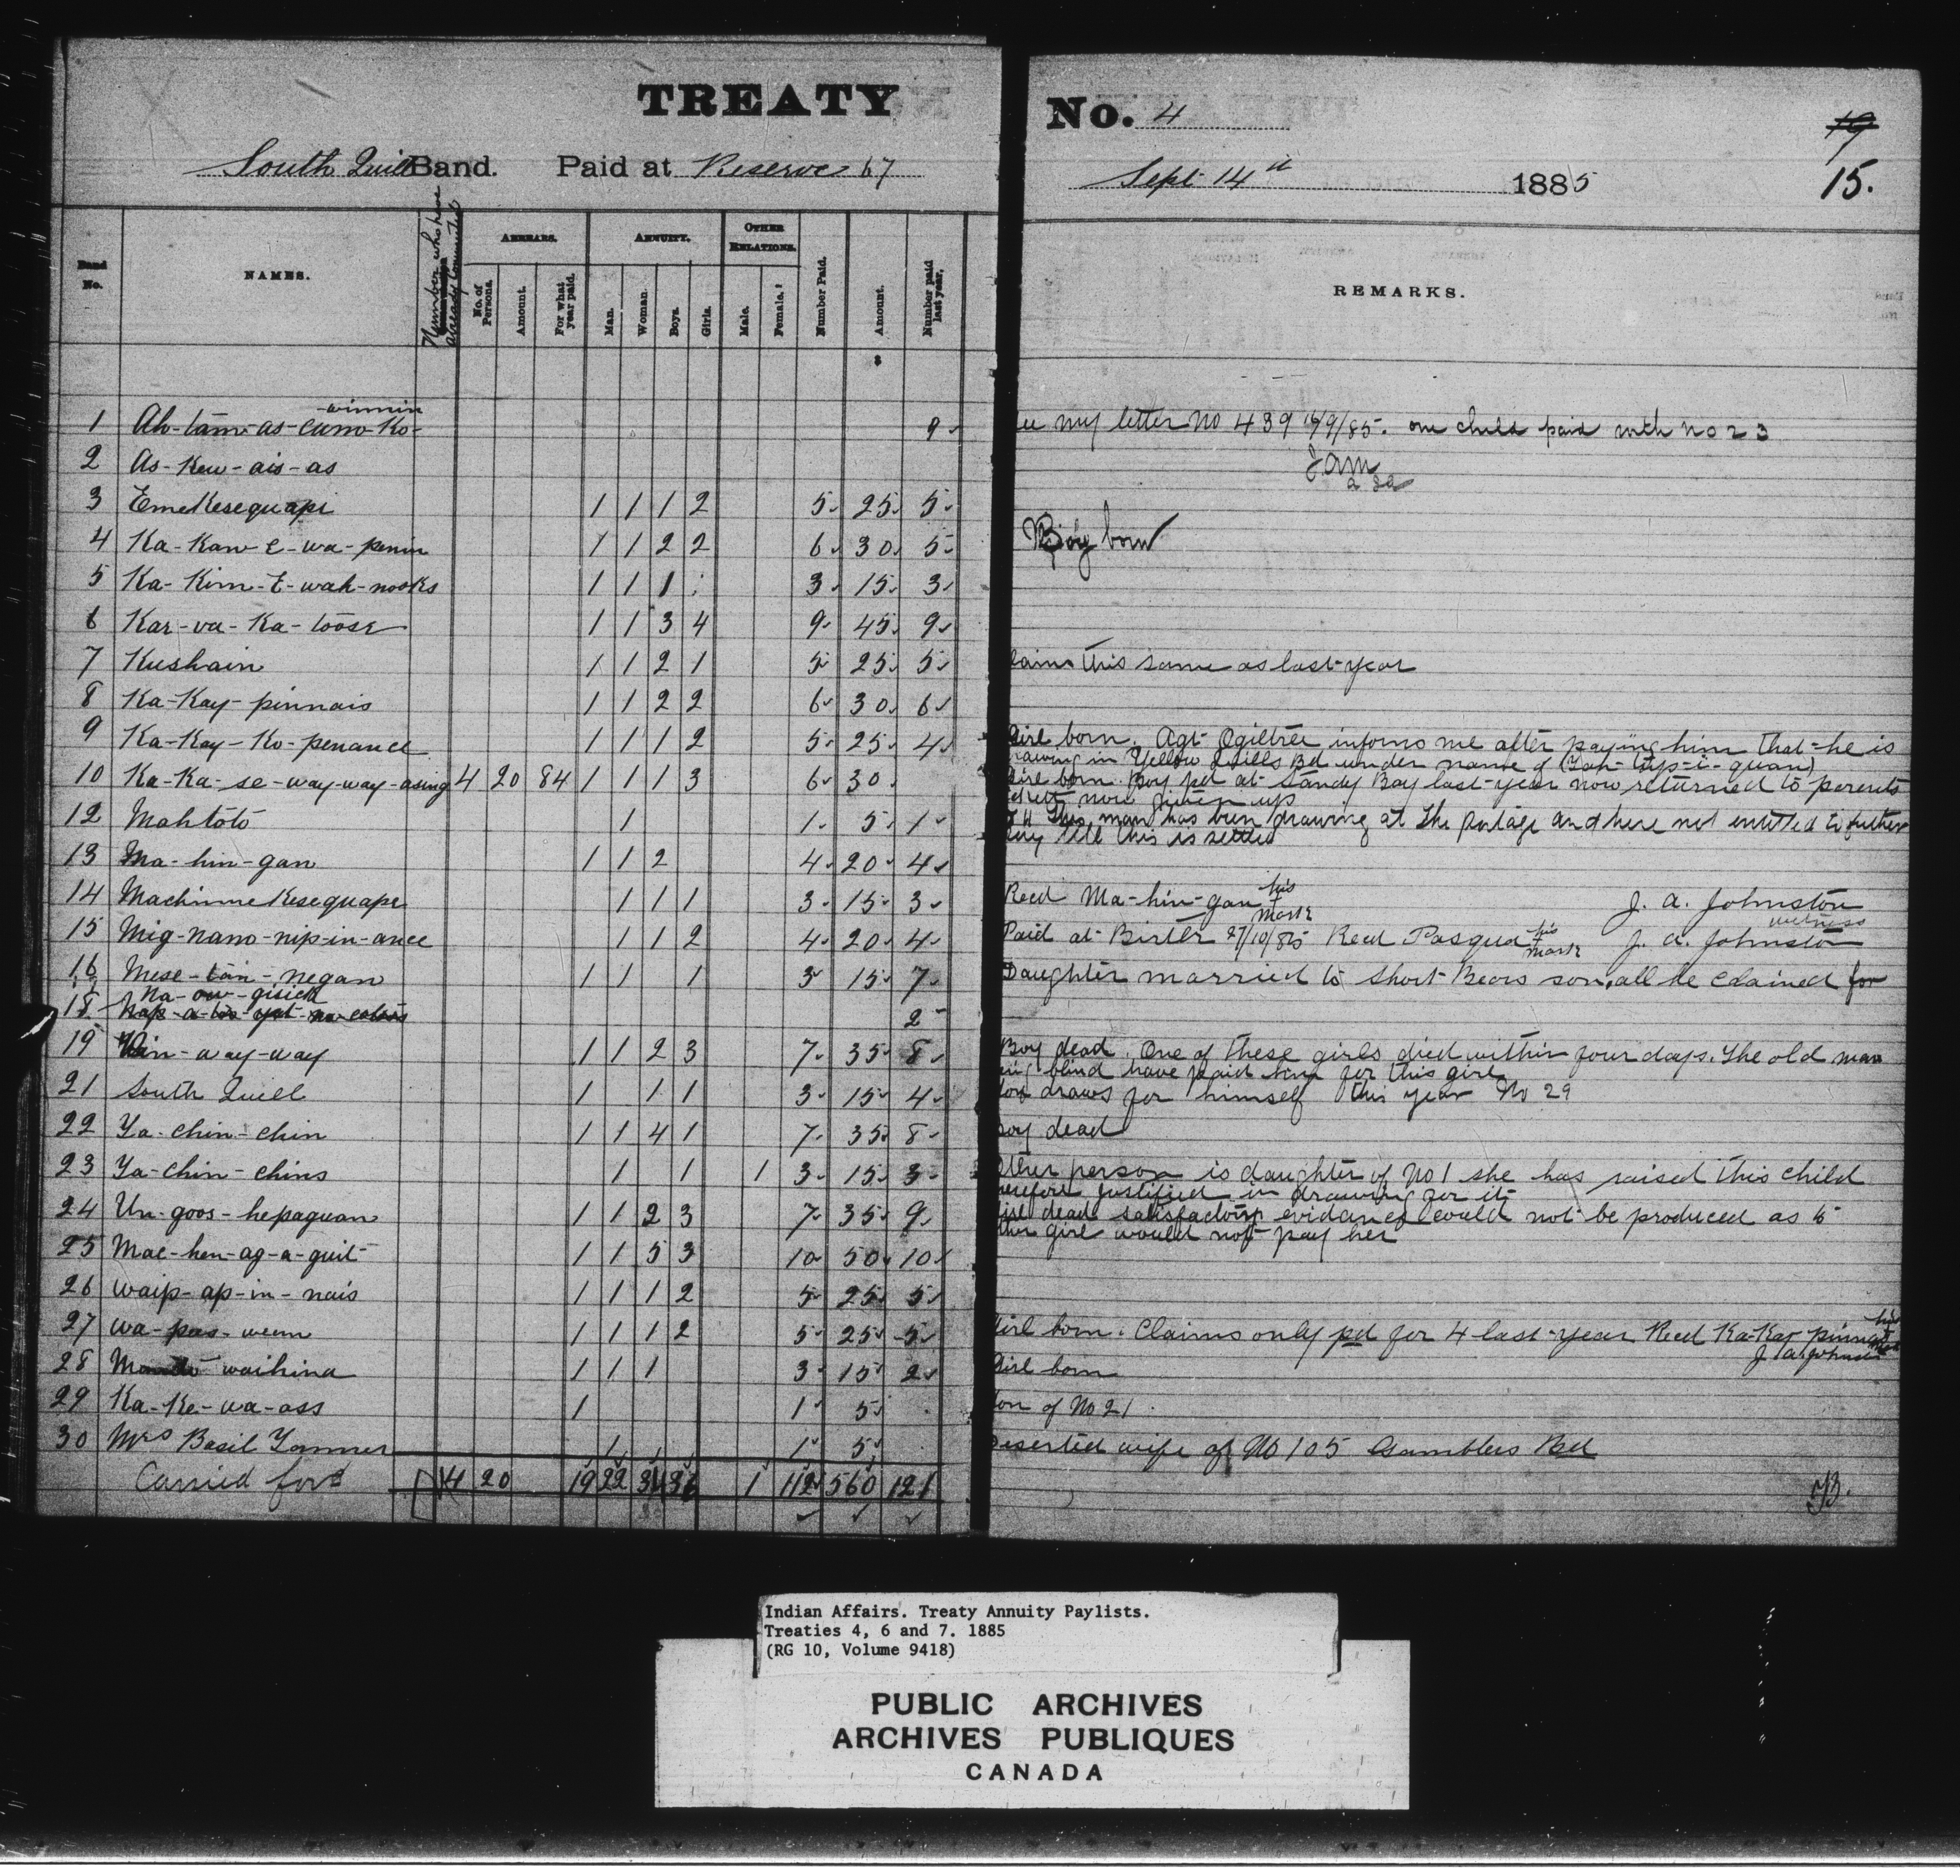 TREATY No. 4
19
South Quill Band. Paid at Reserve 67 Sept 14th 1885 15.
Band No. NAMES. Number who have already commuted ARREARS. No. of Persons. Amount. For what year paid. ANNUITY. Man. Woman. Boys. Girls. OTHER RELATIONS. Male. Female. Number Paid. Amount. Number paid last year. REMARKS.
$
winnin
1 Ah-tam-as-cum-Ko- 9 my letter No 439 /9/85. one child paid with no 23
2 As-Kew-ais-as
3 EmeKesequape 1 1 1 2 5 25 5
4 Ka-Kaw-E-wa-penin 1 1 2 2 6 30 5 Boy born
5 Ka-Kim-E-wah-nooks 1 1 1 3 15 3
6 Kar-va-Ka-toose 1 1 3 4 9 45 9
7 Kushain 1 1 2 1 5 25 5 this same as last year
8 Ka-Kay-pinnais 1 1 2 2 6 30 6
9 Ka-Kay-Ko-penance 1 1 1 2 5 25 4 Girl born. Agt Ogiltree informs me after paying him that he is
in Yellow Quills Bd under name of (Yah-tip-i-quan)
10 Ka-Ka-se-way-way-asing 4 20 84 1 1 1 3 6 30 Girl born. Boy pd at Sandy Bay last year now returned to parents
now given up
12 Mahtoto 1 1 5 1 This man has been drawing at the portage and here not entitled to further
pay till this is settled
13 Ma-hin-gan 1 1 2 4 20 4
14 MachinneKesequape 1 1 1 3 15 3 Recd Ma-hin-gan his mark J. A. Johnston
witness
15 Mig-nano-nip-in-ance 1 1 2 4 20 4 Paid at Birtle 27/10/85 Recd Pasqua his mark J. A. Johnston
16 Mese-tan-negan 1 1 1 3 15 7 Daughter married to Short Bears son, all he claimed for
Na-ow-gisick
18 2
19 Win-way-way 1 1 2 3 7 35 8 Boy dead. One of these girls died within four days. The old man
blind have paid him for this girl
21 South Quill 1 1 1 3 15 4 draws for himself this year No 29
22 Ya-chin-chin 1 1 4 1 7 35 8 Boy dead
23 Ya-chin-chins 1 1 1 3 15 3 Other person is daughter of No 1 she has raised this child
therefore justified in drawing for it
24 Un-goos-hepaguan 1 1 2 3 7 35 9 Girl dead satisfactory evidance could not be produced as to
girl would not pay her
25 Mac-hen-ag-a-guit 1 1 5 3 10 50 10
26 Waip-ap-in-nais 1 1 1 2 5 25 5
27 Wa-pas-wenn 1 1 1 2 5 25 5 Girl born. Claims only pd for 4 last year Recd Ka-Kay pinnais his mark
J. A. Johnston
28 waihina 1 1 1 3 15 2 Girl born
29 Ka-Ke-wa-ass 1 1 5 Son of No 21
30 Mrs Basil Tanner 1 1 5 Deserted wife of No 105 Gamblers Bd
Carried ford 4 20 19 22 34 36 1 112 560 121
Indian Affairs. Treaty Annuity Paylists.
Treaties 4, 6 and 7. 1885
(RG 10, Volume 9418)
PUBLIC ARCHIVES
ARCHIVES PUBLIQUES
CANADA